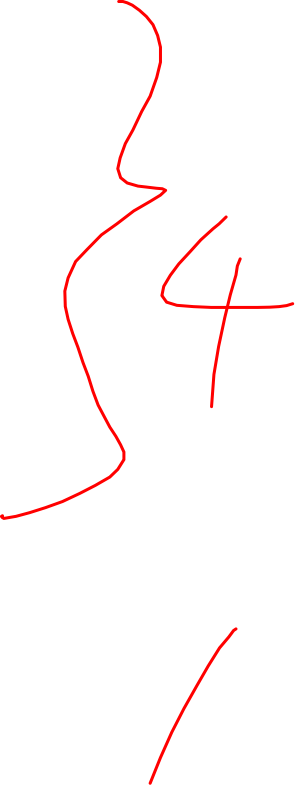 }4
/